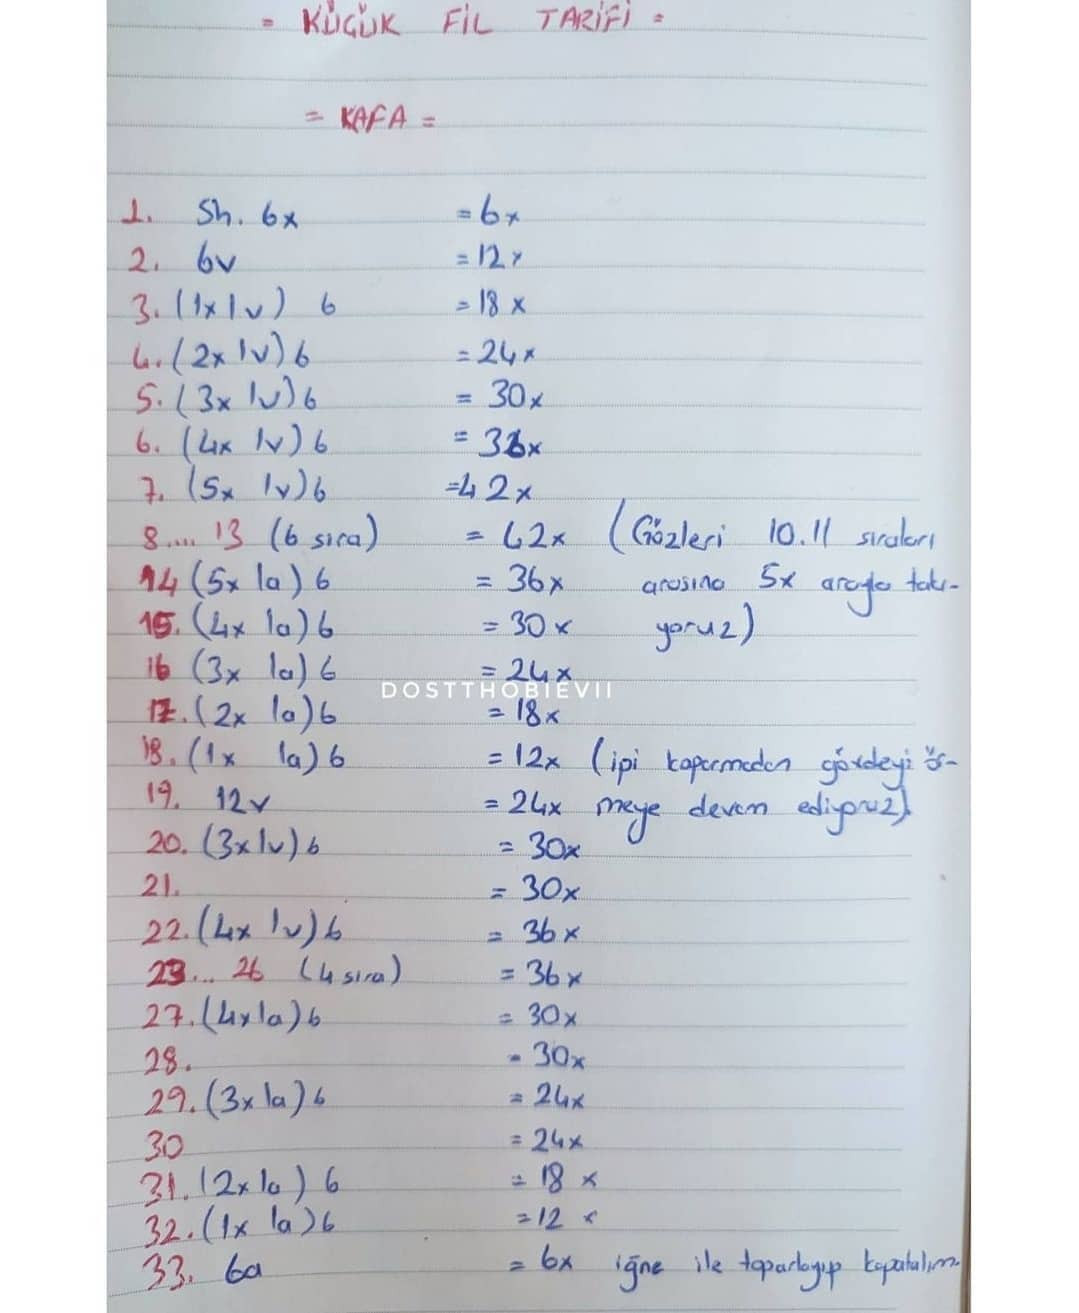 = KÜÇÜK FİL TARİFİ =
= KAFA =
1. Sh. 6x = 6x
2. 6v = 12x
3. (1x 1v) 6 = 18x
4. (2x 1v) 6 = 24x
5. (3x 1v) 6 = 30x
6. (4x 1v) 6 = 36x
7. (5x 1v) 6 = 42x
8.... 13 (6 sıra) = 42x (Gözleri 10.11 sıraları
14 (5x 1a) 6 = 36x arasına 5x arayla takı-
15. (4x 1a) 6 = 30x yoruz)
16 (3x 1a) 6 = 24x
DOSTTHOBIEVII
17. (2x 1a) 6 = 18x
18. (1x 1a) 6 = 12x (ipi koparmadan gövdeyi ör-
19. 12v = 24x meye devam ediyoruz)
20. (3x 1v) 6 = 30x
21. = 30x
22. (4x 1v) 6 = 36x
23... 26 (4 sıra) = 36x
27. (4x 1a) 6 = 30x
28. = 30x
29. (3x 1a) 6 = 24x
30 = 24x
31. (2x 1a) 6 = 18x
32. (1x 1a) 6 = 12x
33. 6a = 6x iğne ile toparlayıp kapatalım.